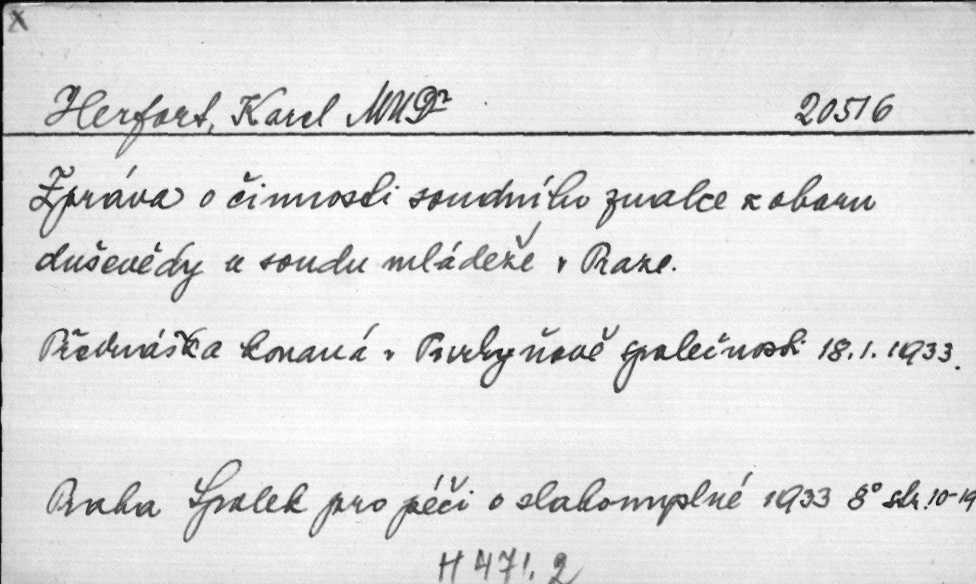 X
Herfort, Karel MUDr 20516
Zpráva o činnosti soudního znalce z oboru
duševědy u soudu mládeže v Praze.
Přednáška konaná v Purkyňově společnosti 18.1.1933.
Praha Spolek pro péči o slabomyslné 1933 8° str. 10-19
H 471.2